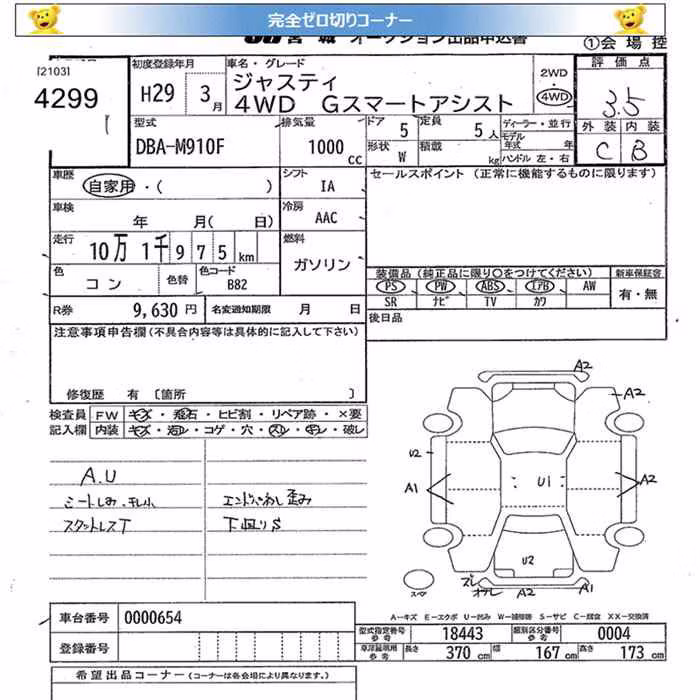 完全ゼロ切りコーナー
JU宮城 オークション出品申込書
①会場控
[2103]
4299
初度登録年月
H29 3月
車名・グレード
ジャスティ
4WD Gスマートアシスト
2WD
・
4WD
評価点
3.5
外装 内装
C B
型式
DBA-M910F
排気量
1000 cc
ドア 5
定員 5人
形状 W
積載 kg
ディーラー・並行
モデル年式 年
ハンドル 左・右
車歴
自家用・( )
シフト
IA
セールスポイント (正常に機能するものに限ります)
車検
年 月( 日)
冷房
AAC
走行
10万 1千 9 7 5 km
燃料
ガソリン
色
コン
色替
色コード
B82
装備品 (純正品に限り○をつけてください)
新車保証書
PS PW ABS エアB AW
SR ナビ TV カワ
有・無
R券 9,630 円
名変通知期限 月 日
後日品
注意事項申告欄 (不具合内容等は具体的に記入して下さい)
修復歴 有 [箇所 ]
検査員 FW キズ・飛石・ヒビ割・リペア跡・×要
記入欄 内装 キズ・汚レ・コゲ・穴・スレ・キレ・破レ
A.U
シートしみ.
スカットレスT
エンド
歪み
下廻りS
A2
A2
U2
A1
U1
A2
U2
ズレ
A2
A1
スペア
A-キズ E-エクボ U-凹み W-補修跡 S-サビ C-腐食 XX-交換済
車台番号 0000654
登録番号
型式指定番号 参考 18443
類別区分番号 参考 0004
車庫証明用 参考 長さ 370 cm 幅 167 cm 高さ 173 cm
希望出品コーナー (コーナーは各会場により異なります。)